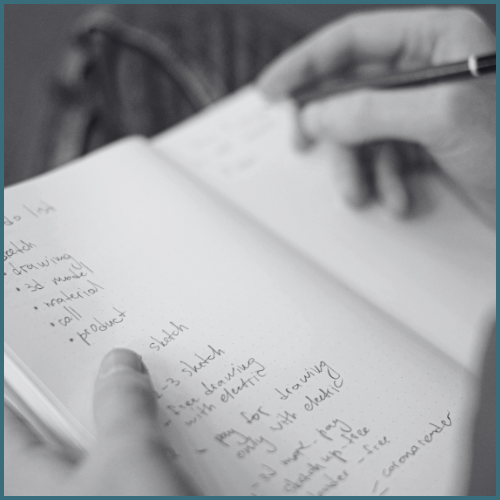 do list
sketch
• drawing
• 3d model
• material
• call
• product
sketch
2-3 sketch
- free drawing
with electric
- pay for drawing
only with electric
- 3d model - pay
sketch up - free
- free
- coronarender